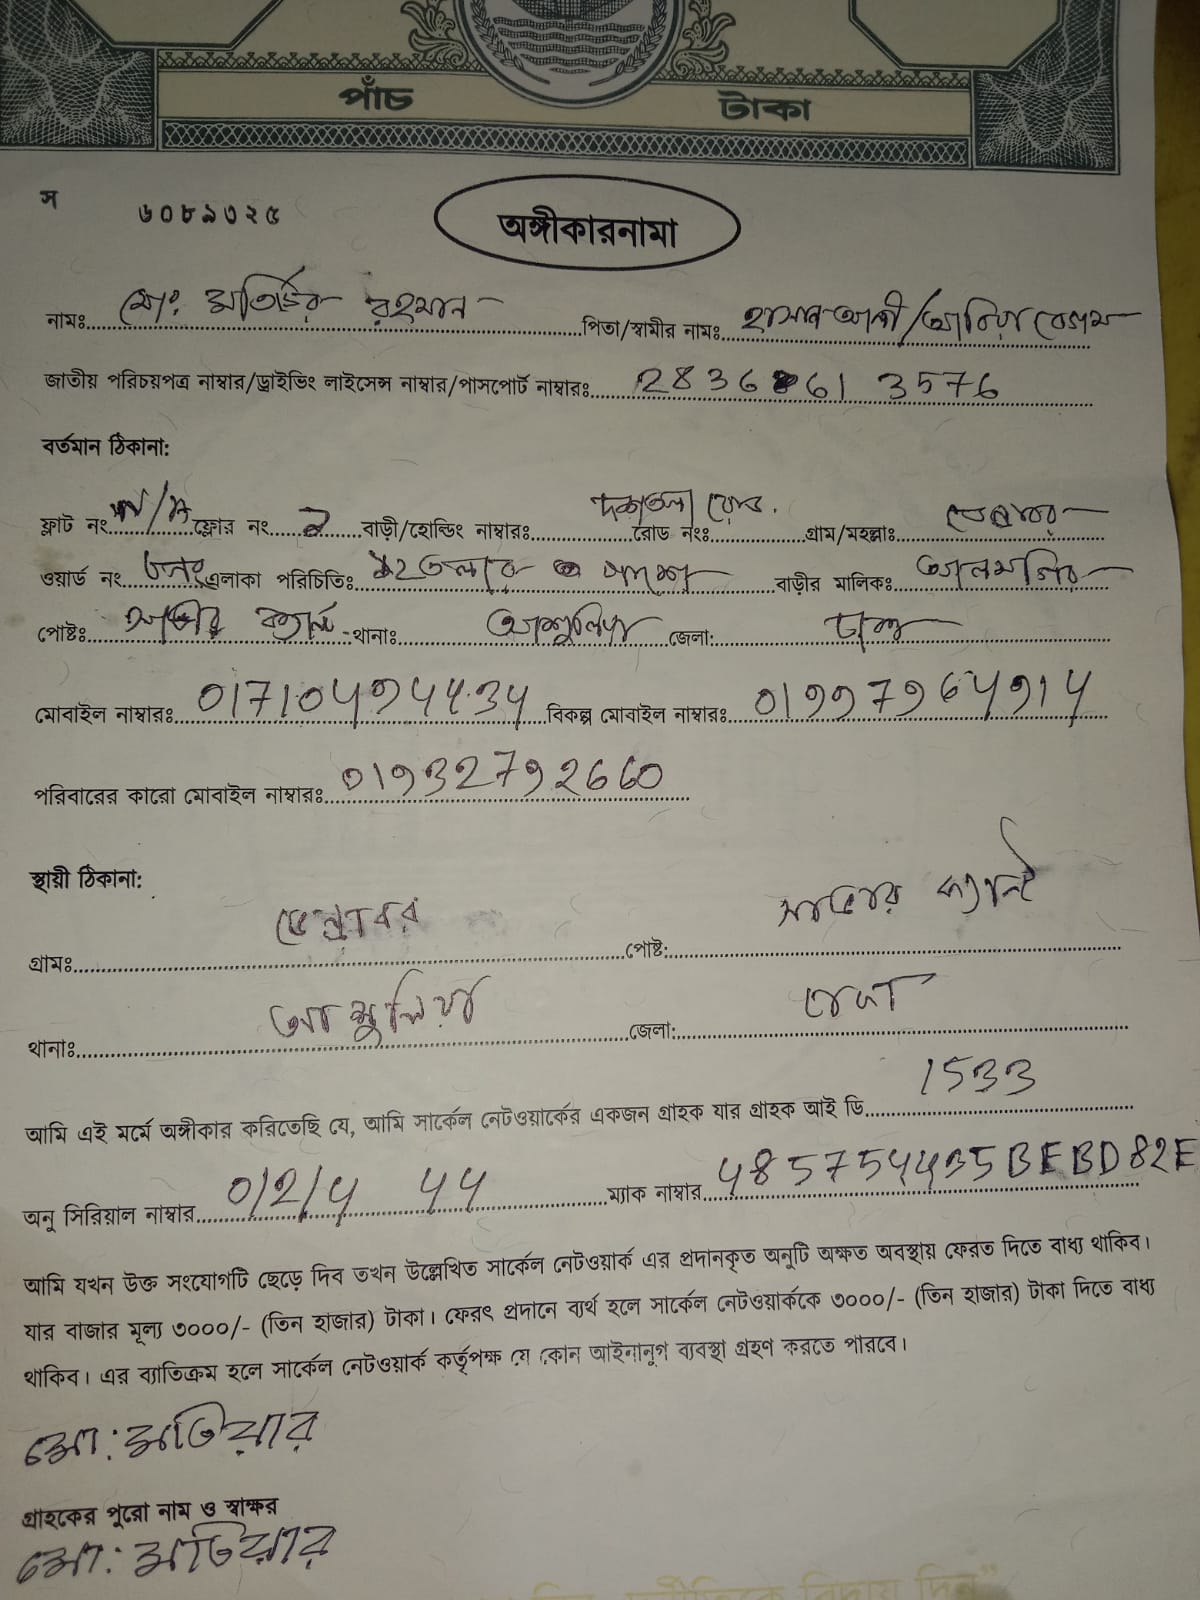 পাঁচ টাকা
স ৬০৮৯৩২৫
অঙ্গীকারনামা
নামঃ মোঃ মতিউর রহমান পিতা/স্বামীর নামঃ হাসান আলী/আনিছা বেগম
জাতীয় পরিচয়পত্র নাম্বার/ড্রাইভিং লাইসেন্স নাম্বার/পাসপোর্ট নাম্বারঃ 2836 61 3576
বর্তমান ঠিকানা:
ফ্লাট নং N/A ফ্লোর নং 2 বাড়ী/হোল্ডিং নাম্বারঃ রোড নংঃ গ্রাম/মহল্লাঃ
ওয়ার্ড নং এলাকা পরিচিতিঃ বাড়ীর মালিকঃ আলমগির
পোষ্টঃ সাভার ক্যান্ট থানাঃ আশুলিয়া জেলা: ঢাকা
মোবাইল নাম্বারঃ 01710494434 বিকল্প মোবাইল নাম্বারঃ 01997964914
পরিবারের কারো মোবাইল নাম্বারঃ 01932792660
স্থায়ী ঠিকানা:
গ্রামঃ ডেন্ডাবর পোষ্ট: সাভার ক্যান্ট
থানাঃ আশুলিয়া জেলা: ঢাকা
আমি এই মর্মে অঙ্গীকার করিতেছি যে, আমি সার্কেল নেটওয়ার্কের একজন গ্রাহক যার গ্রাহক আই ডি 1533
অনু সিরিয়াল নাম্বার 0/2/4 44 ম্যাক নাম্বার 485754435BEBD82E
আমি যখন উক্ত সংযোগটি ছেড়ে দিব তখন উল্লেখিত সার্কেল নেটওয়ার্ক এর প্রদানকৃত অনুটি অক্ষত অবস্থায় ফেরত দিতে বাধ্য থাকিব।
যার বাজার মূল্য ৩০০০/- (তিন হাজার) টাকা। ফেরৎ প্রদানে ব্যর্থ হলে সার্কেল নেটওয়ার্ককে ৩০০০/- (তিন হাজার) টাকা দিতে বাধ্য
থাকিব। এর ব্যাতিক্রম হলে সার্কেল নেটওয়ার্ক কর্তৃপক্ষ যে কোন আইনানুগ ব্যবস্থা গ্রহণ করতে পারবে।
মো: মতিয়ার
গ্রাহকের পুরো নাম ও স্বাক্ষর
মো: মতিয়ার